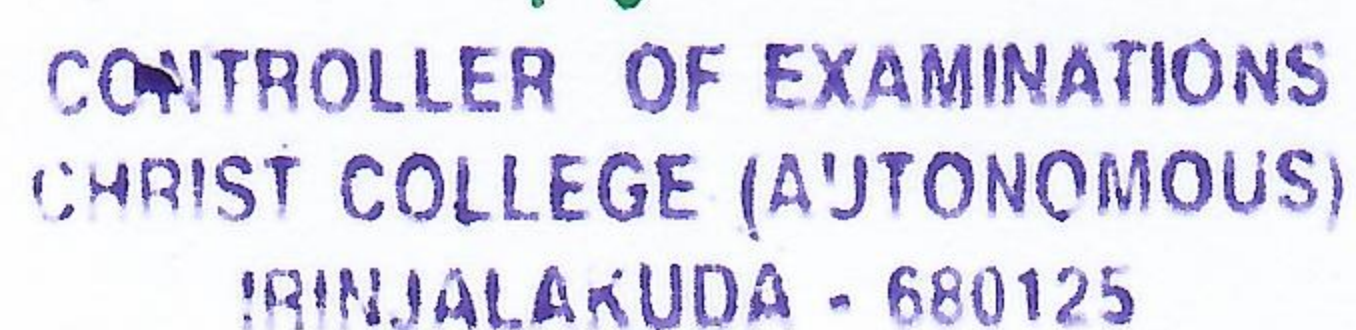 CONTROLLER OF EXAMINATIONS
CHRIST COLLEGE (AUTONOMOUS)
IRINJALAKUDA - 680125